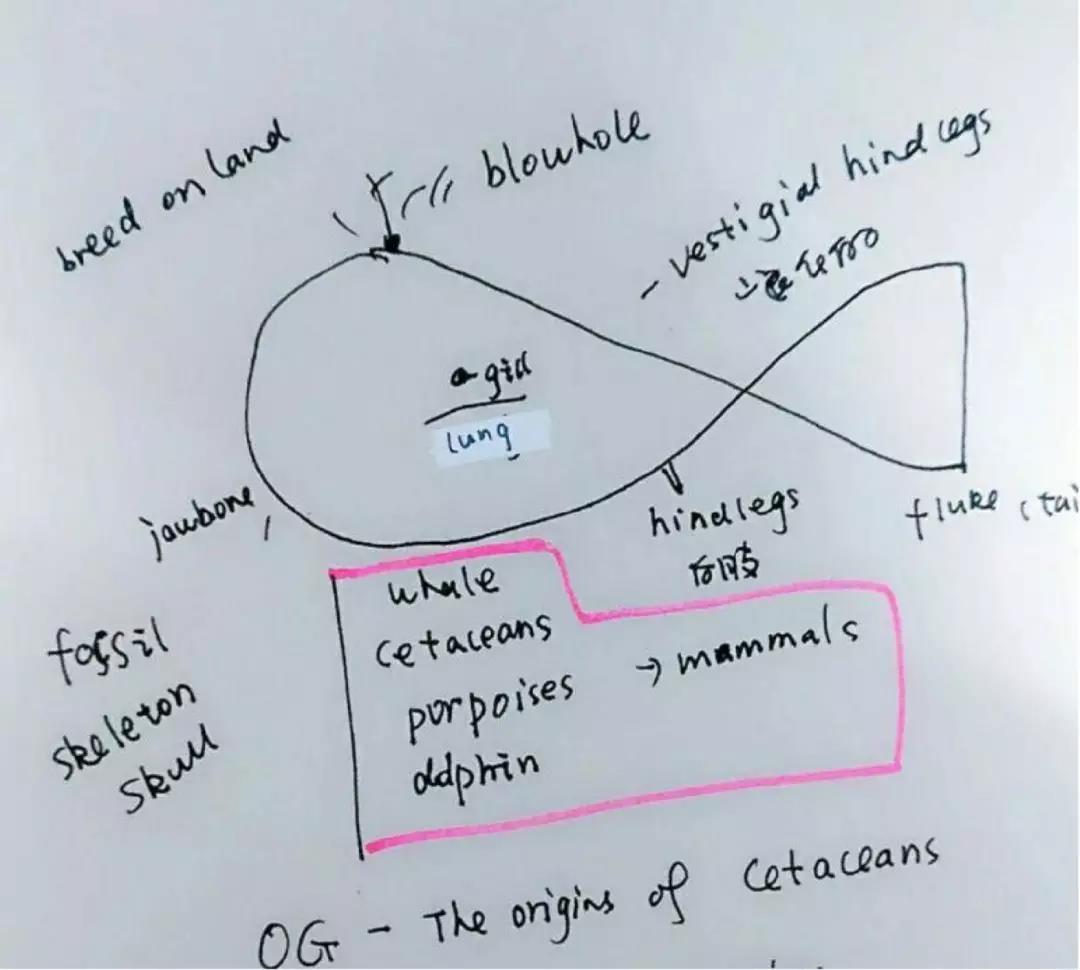 breed on land
blowhole
- vestigial hind legs
退化
gill
lung
jawbone
hindlegs
后肢
fluke (tai
fossil
skeleton
skull
whale
cetaceans
porpoises
→ mammals
dolphin
OG - The origins of cetaceans